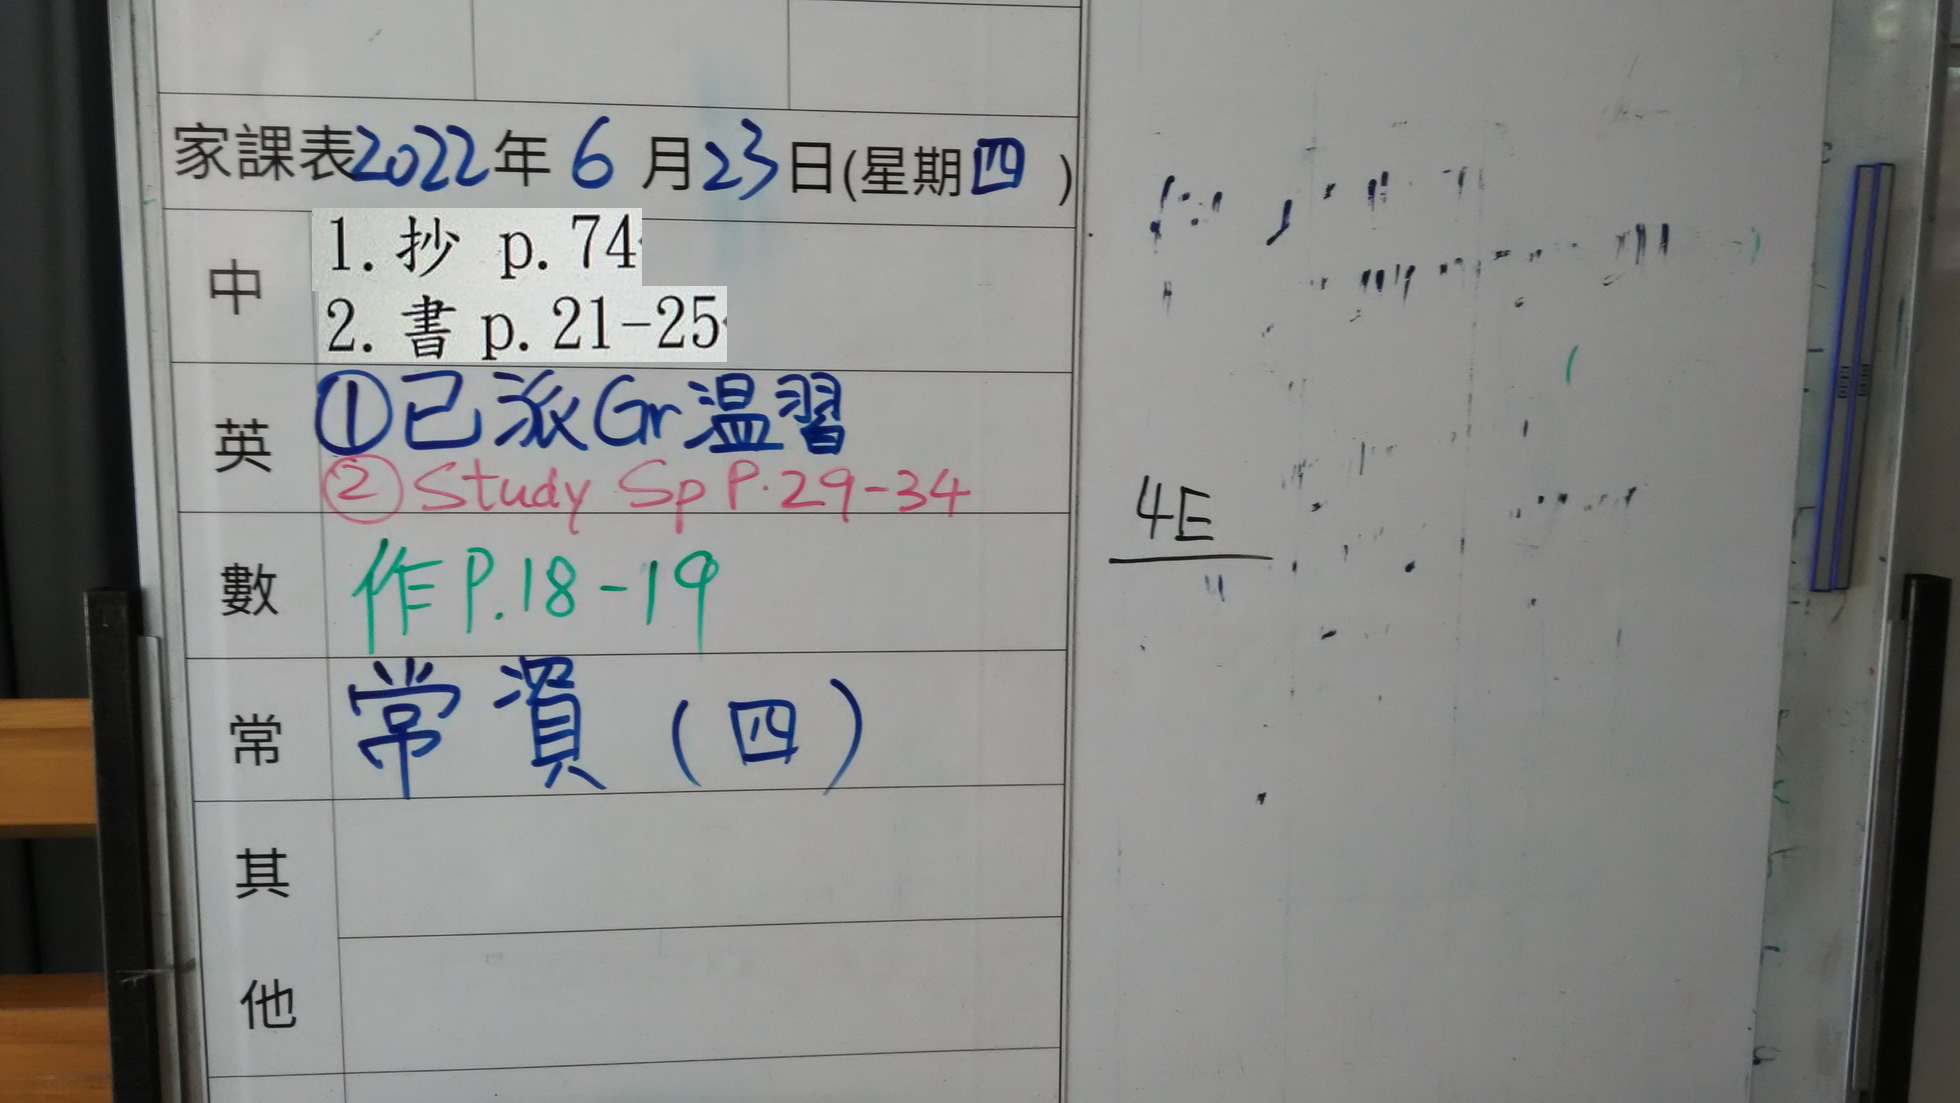 家課表2022年6月23日(星期四)
中
1. 抄 p. 74
2. 書 p. 21-25
英
①已派Gr温習
②Study Sp P.29-34
數
作P.18-19
常
常濵(四)
其
他
4E